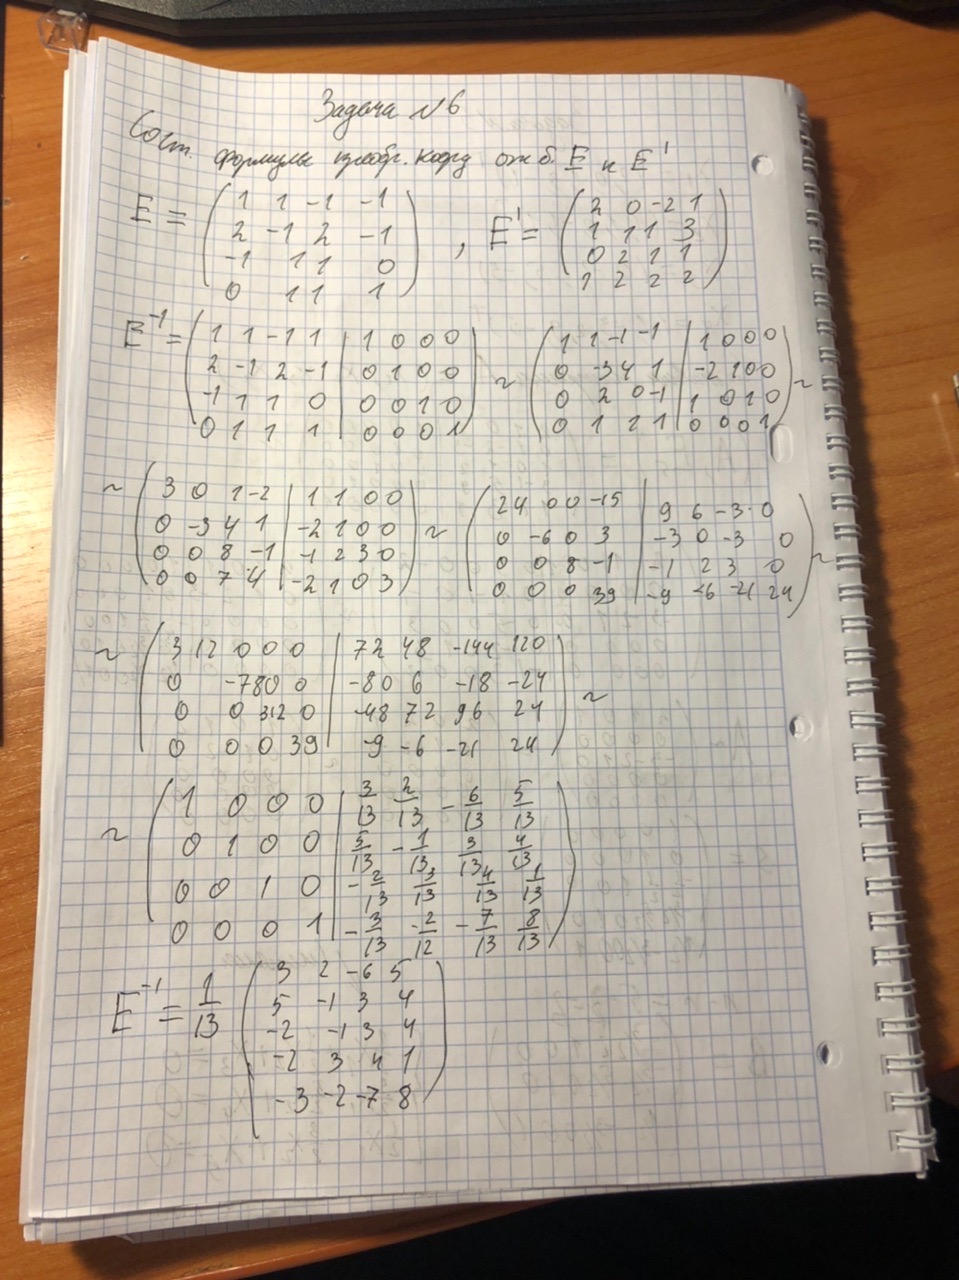 Задача №6
Сост. формулы преобр. коорд от б. E к E'
E = ( 1 1 -1 -1
2 -1 2 -1
-1 1 1 0
0 1 1 1 ) , E' = ( 2 0 -2 1
1 1 1 3
0 2 1 1
1 2 2 2 )
E⁻¹ = ( 1 1 -1 1 | 1 0 0 0
2 -1 2 -1 | 0 1 0 0
-1 1 1 0 | 0 0 1 0
0 1 1 1 | 0 0 0 1 ) ~ ( 1 1 -1 -1 | 1 0 0 0
0 -3 4 1 | -2 1 0 0
0 2 0 -1 | 1 0 1 0
0 1 1 1 | 0 0 0 1 ) ~
~ ( 3 0 1 -2 | 1 1 0 0
0 -3 4 1 | -2 1 0 0
0 0 8 -1 | -1 2 3 0
0 0 7 4 | -2 1 0 3 ) ~ ( 24 0 0 -15 | 9 6 -3 0
0 -6 0 3 | -3 0 -3 0
0 0 8 -1 | -1 2 3 0
0 0 0 39 | -9 -6 -21 24 ) ~
~ ( 312 0 0 0 | 72 48 -144 120
0 -78 0 0 | -80 6 -18 -24
0 0 312 0 | -48 72 96 24
0 0 0 39 | -9 -6 -21 24 ) ~
~ ( 1 0 0 0 | 3/13 2/13 -6/13 5/13
0 1 0 0 | 5/13 -1/13 3/13 4/13
0 0 1 0 | -2/13 3/13 4/13 1/13
0 0 0 1 | -3/13 -2/12 -7/13 8/13 )
E⁻¹ = 1/13 ( 3 2 -6 5
5 -1 3 4
-2 -1 3 4
-2 3 4 1
-3 -2 -7 8 )